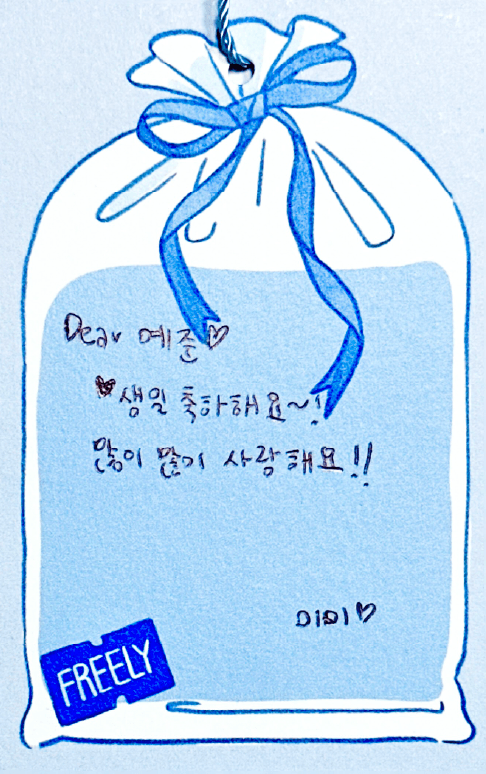 Dear 예준♡
♥생일 축하해요~!
많이 많이 사랑해요!!
미미♡
FREELY